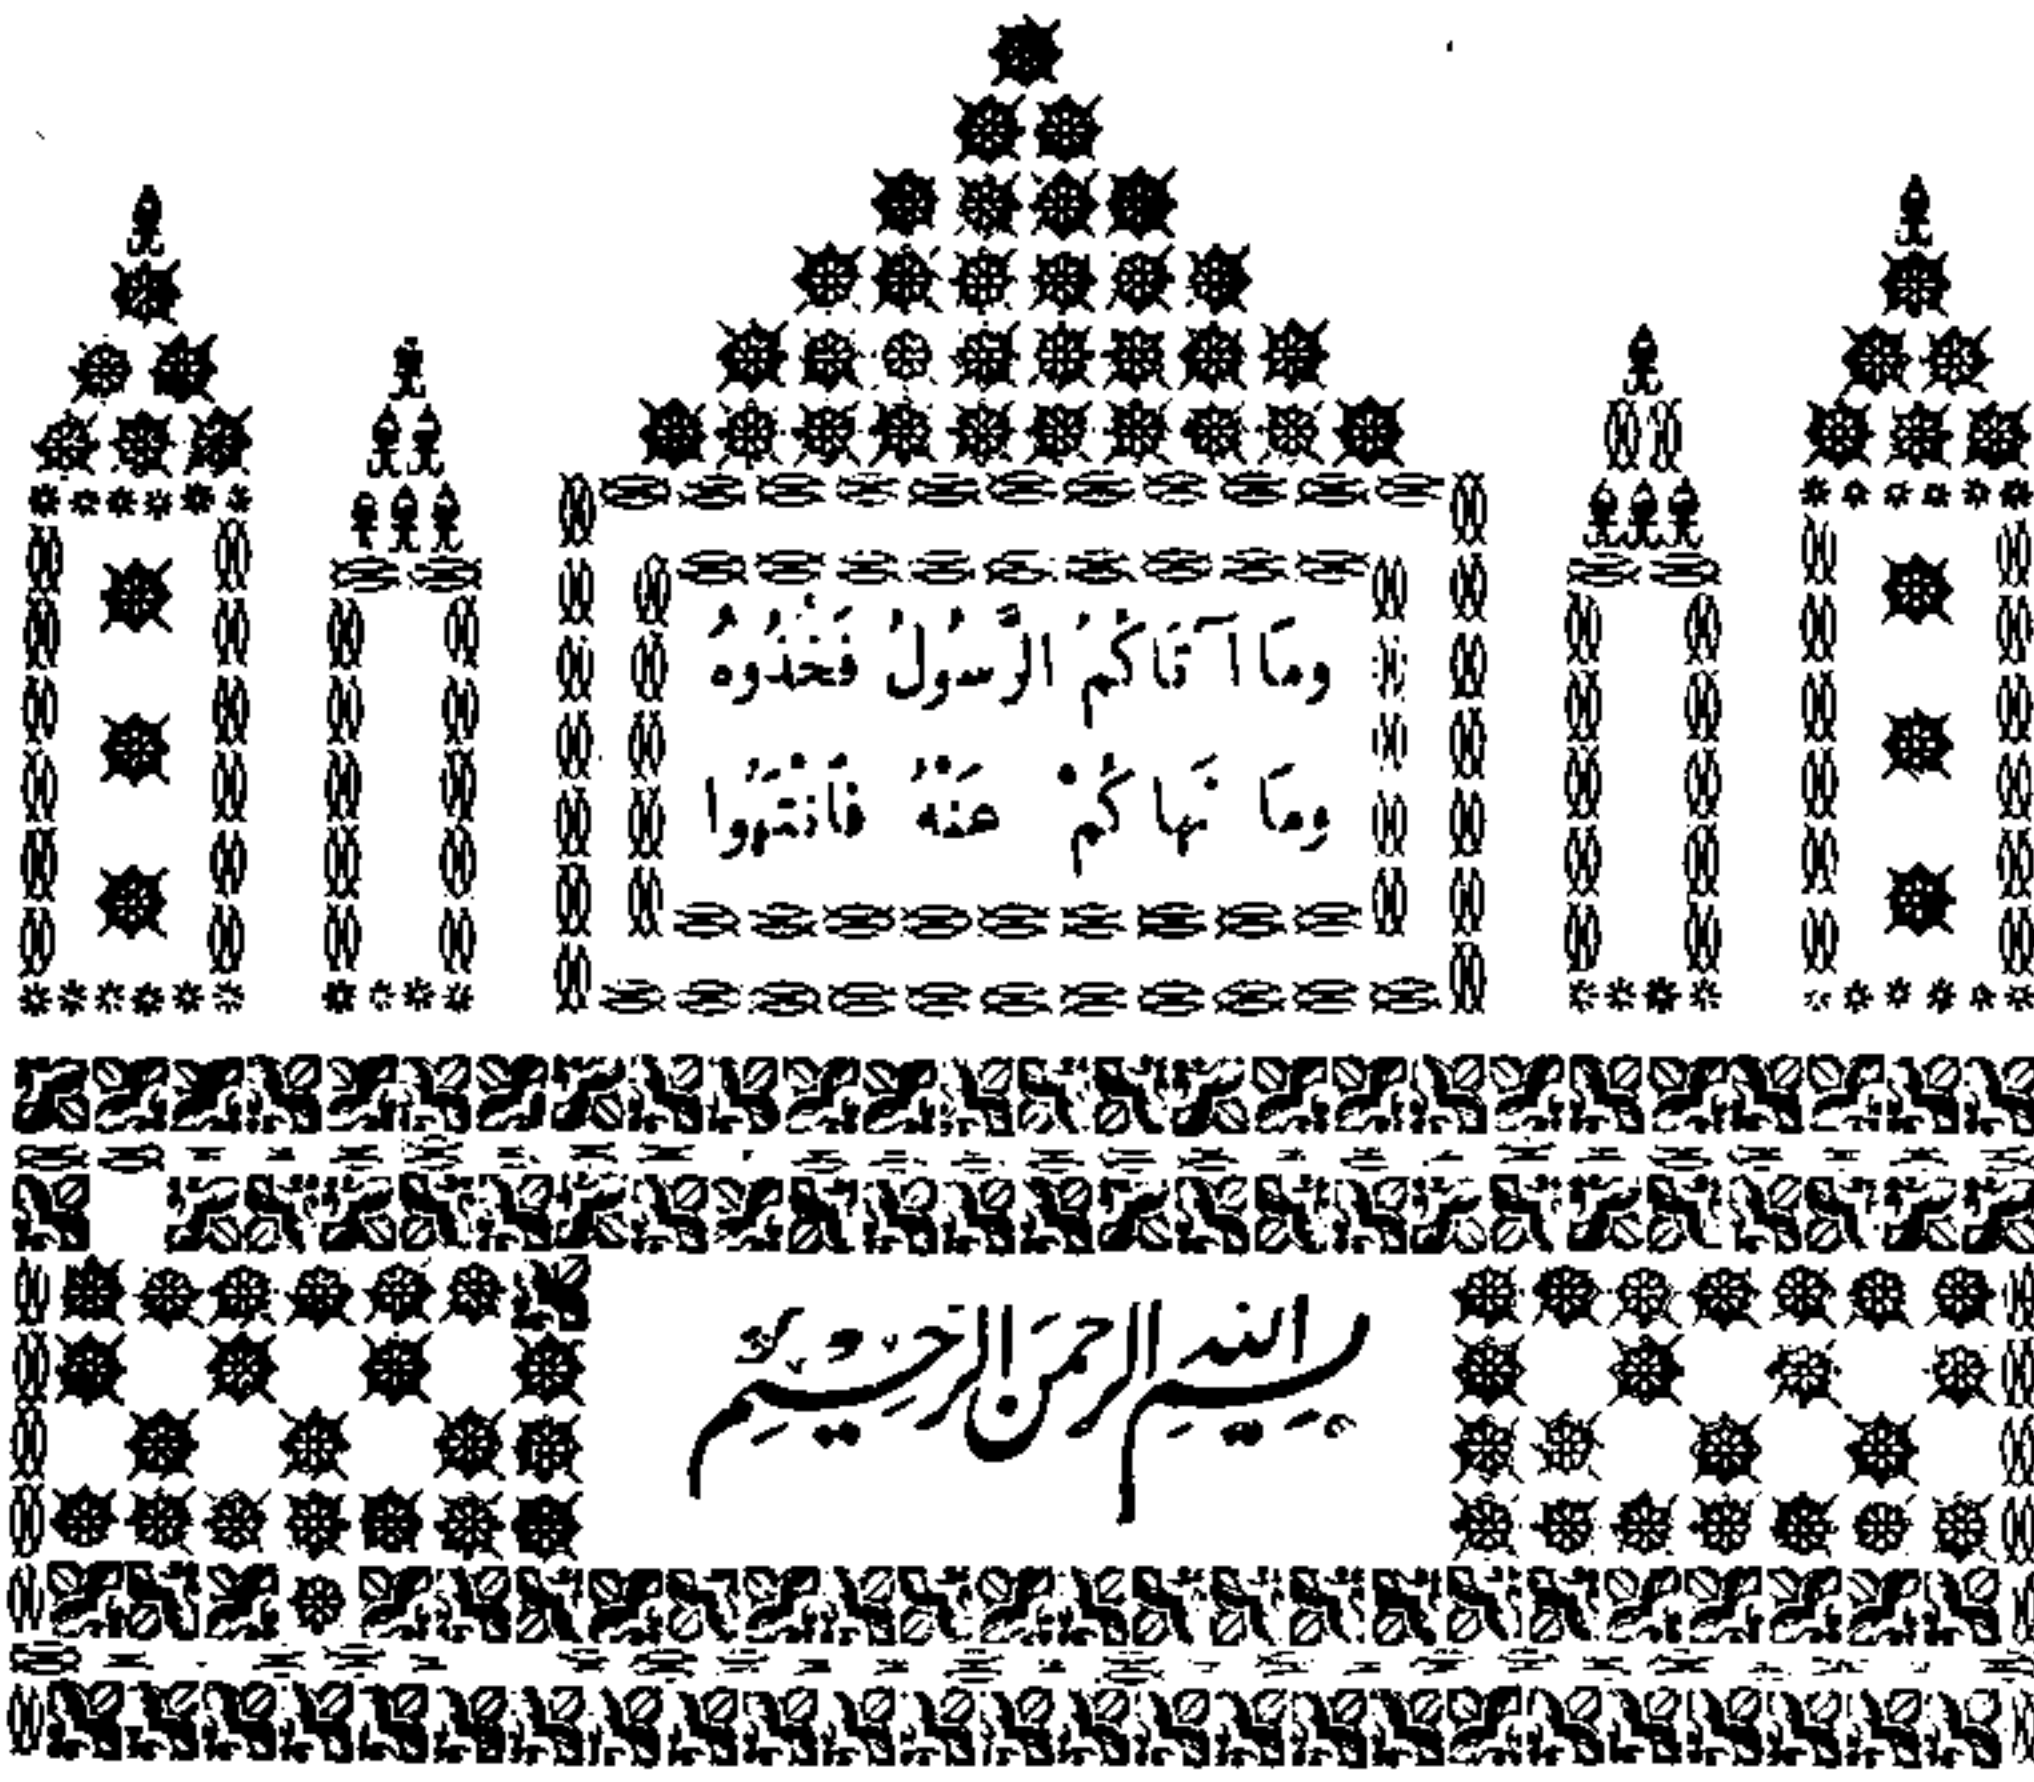 ومَا آتَاكُمُ الرَّسُولُ فَخُذُوهُ
ومَا نَهاكُمْ عَنْهُ فَانْتَهُوا
بسم الله الرحمن الرحيم